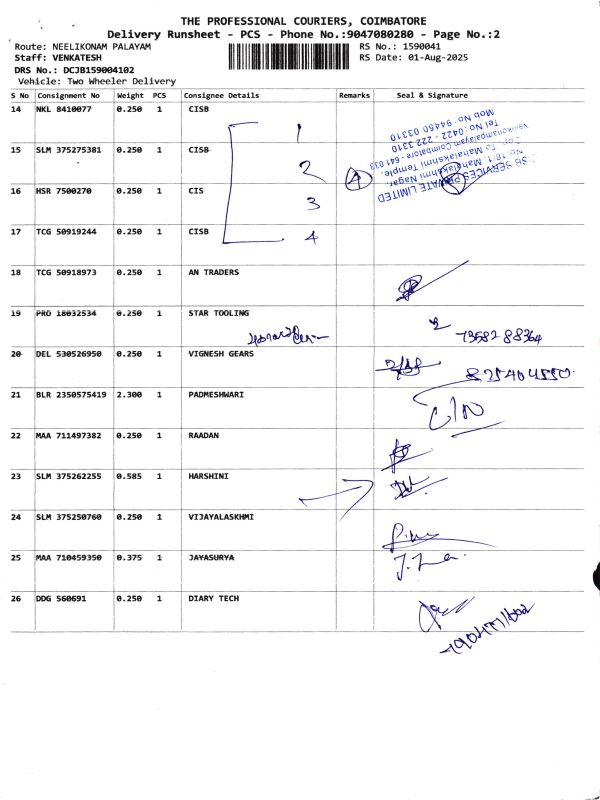 THE PROFESSIONAL COURIERS, COIMBATORE
Delivery Runsheet - PCS - Phone No.:9047080280 - Page No.:2
Route: NEELIKONAM PALAYAM
RS No.: 1590041
Staff: VENKATESH
RS Date: 01-Aug-2025
DRS No.: DCJB159004102
Vehicle: Two Wheeler Delivery
S No Consignment No Weight PCS Consignee Details Remarks Seal & Signature
14 NKL 8410077 0.250 1 CISB
1
15 SLM 375275381 0.250 1 CISB
2
16 HSR 7500270 0.250 1 CIS
3
17 TCG 50919244 0.250 1 CISB
4
4
SB SERVICES PRIVATE LIMITED
No. 18/1, Mahalakshmi Nagar,
Opp. To Mahalakshmi Temple,
Coimbatore - 641 033
Tel No: 0422 - 222 3310
Mob No: 94450 03310
18 TCG 50918973 0.250 1 AN TRADERS
19 PRO 18032534 0.250 1 STAR TOOLING
7358288364
20 DEL 530526950 0.250 1 VIGNESH GEARS
21 BLR 2350575419 2.300 1 PADMESHWARI
22 MAA 711497382 0.250 1 RAADAN
23 SLM 375262255 0.585 1 HARSHINI
24 SLM 375250760 0.250 1 VIJAYALASKHMI
25 MAA 710459350 0.375 1 JAYASURYA
26 DDG 560691 0.250 1 DIARY TECH